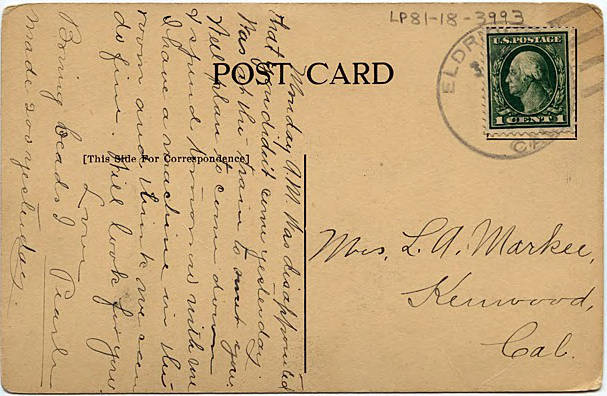 LP81-18-3993
POST CARD
U.S. POSTAGE
1 CENT 1
ELDRI
CAL
[This Side For Correspondence]
Monday A.M. Was disappointed
that you didn't come yesterday.
Was at the train to meet you.
Will plan to come down
& spend tomorrow with me
I have a machine in the
room and think we can
do fine. Will look for you.
Love Pearle
Boring beads I
made 200 yesterday.
Mrs. L. A. Markee,
Kenwood,
Cal.